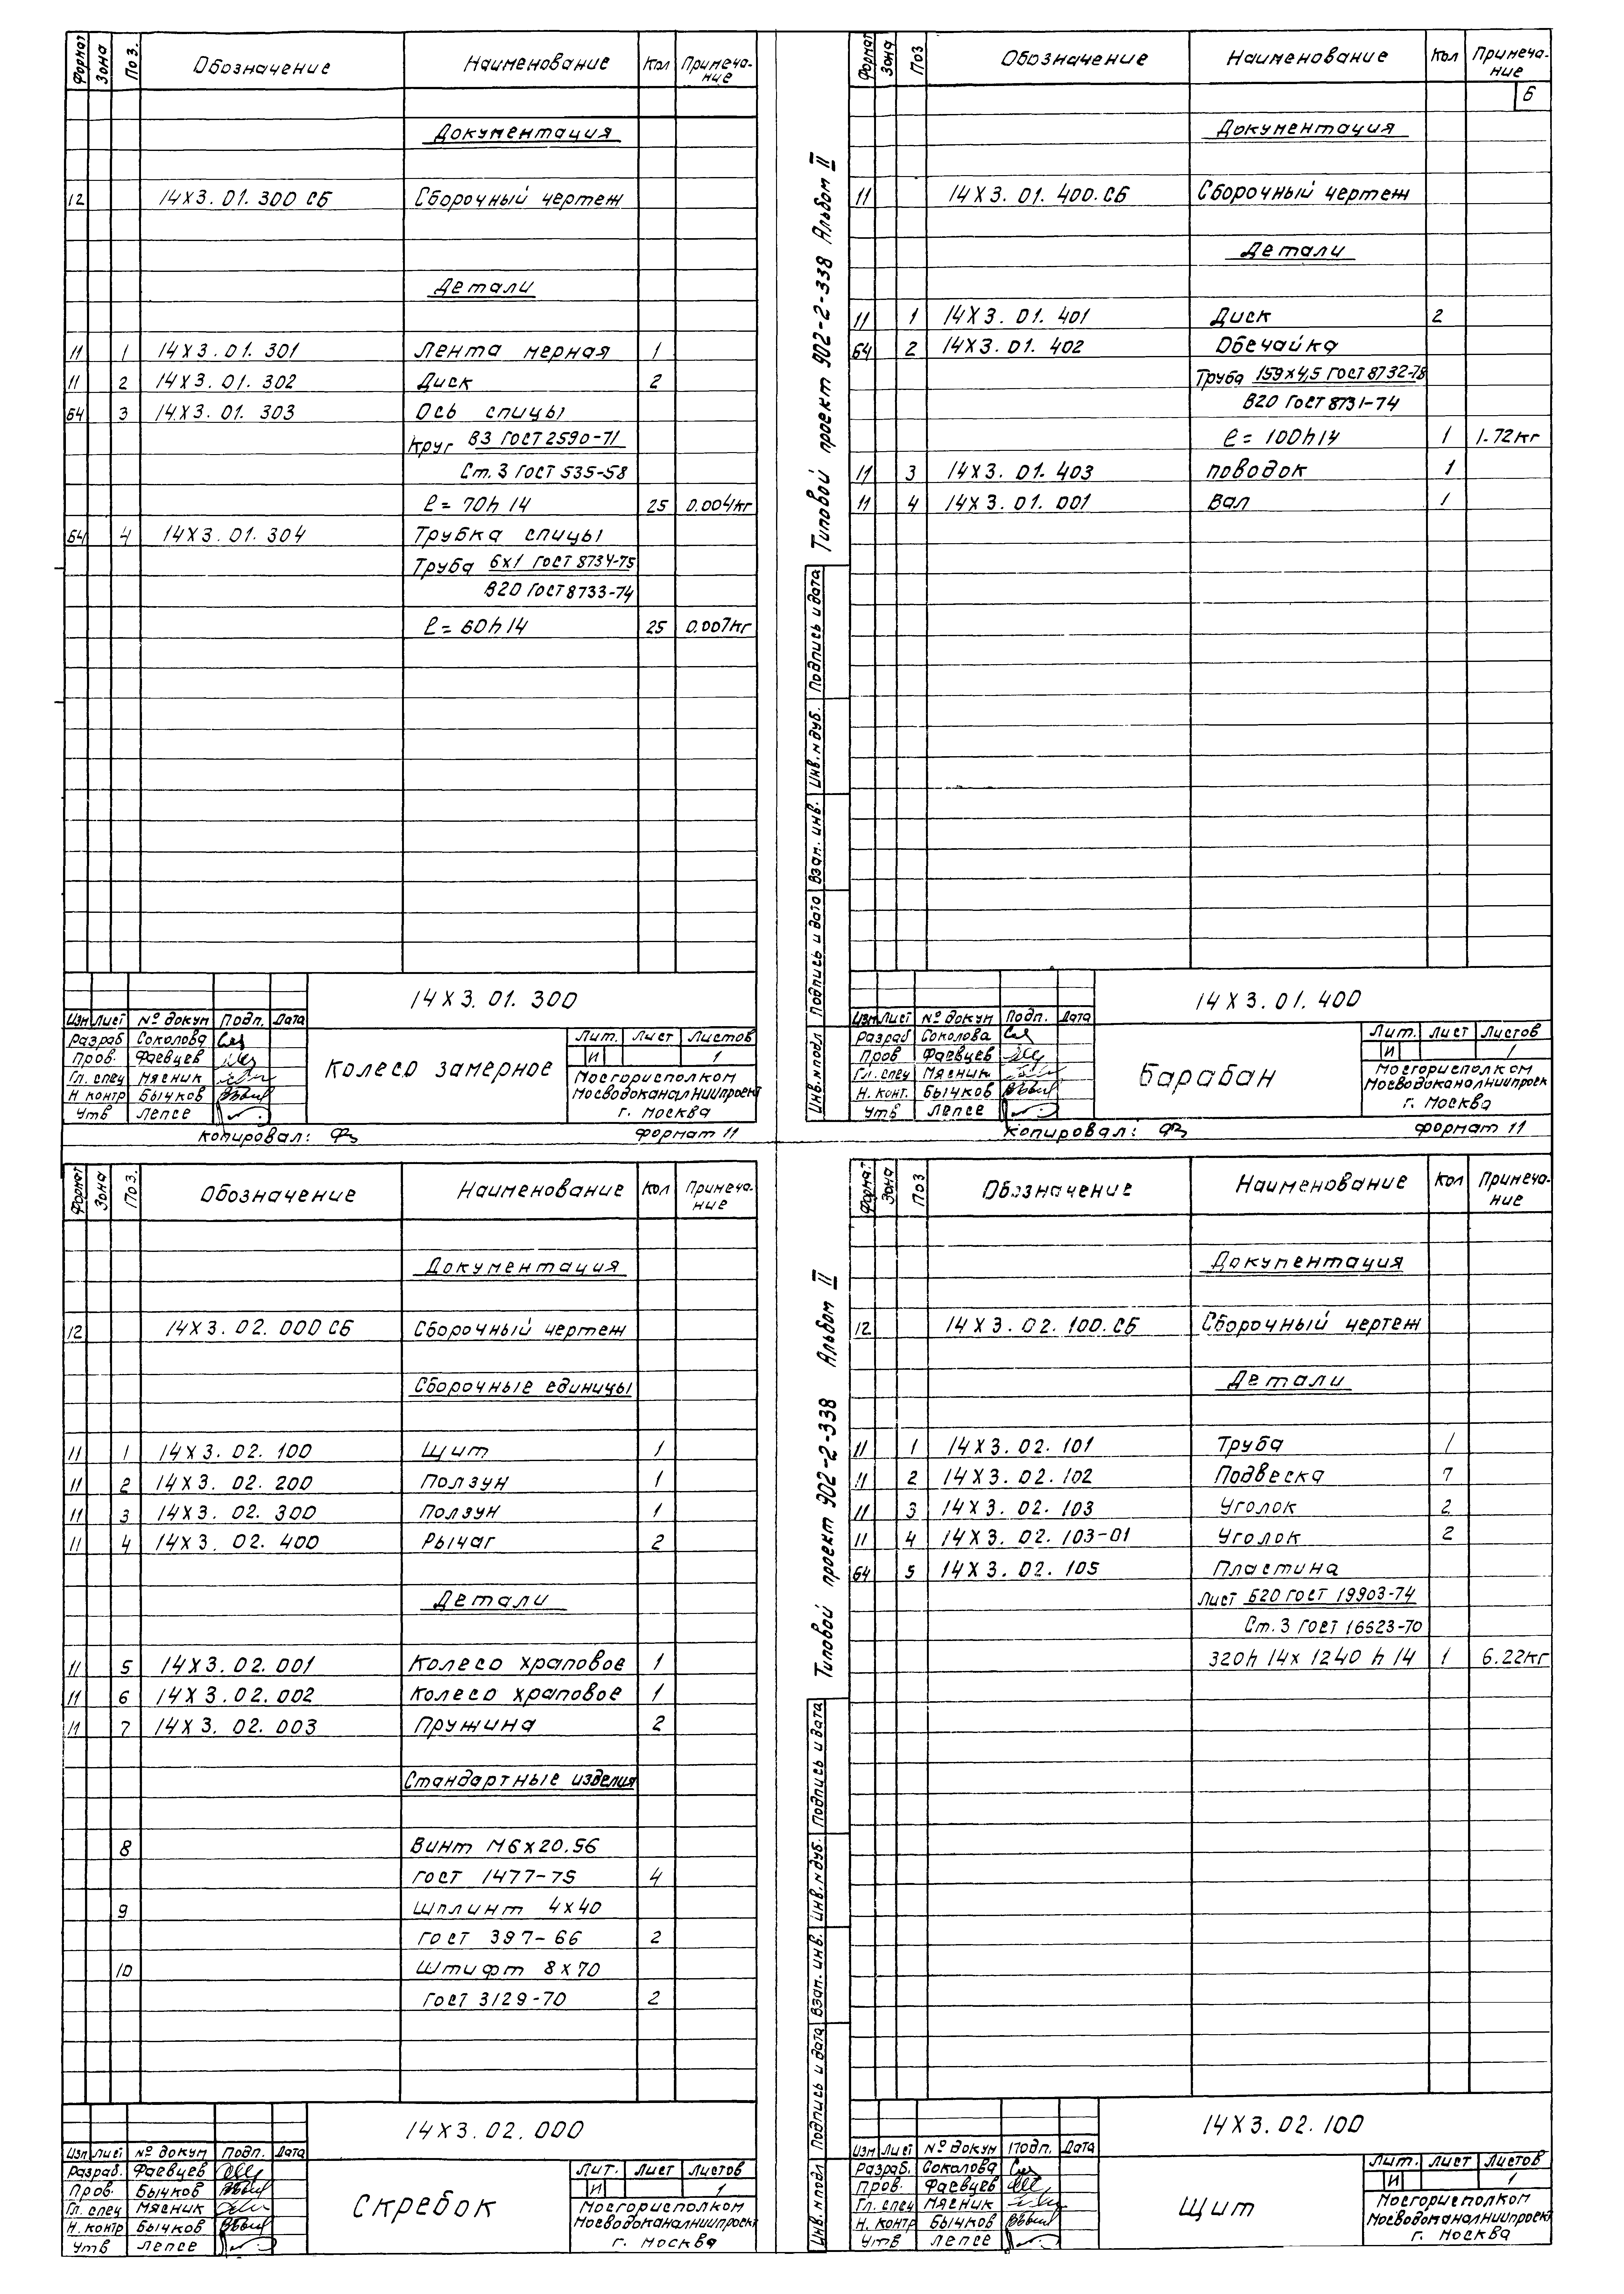 Формат Зона Поз. Обозначение Наименование Кол Примеча-
ние
Документация
12 14Х3.01.300 СБ Сборочный чертеж
Детали
11 1 14Х3.01.301 Лента мерная 1
11 2 14Х3.01.302 Диск 2
Б4 3 14Х3.01.303 Ось спицы
Круг В3 ГОСТ 2590-71
Ст.3 ГОСТ 535-58
ℓ = 70h14 25 0.004кг
Б4 4 14Х3.01.304 Трубка спицы
Труба 6х1 ГОСТ 8734-75
В20 ГОСТ 8733-74
ℓ = 60h14 25 0.007кг
14Х3.01.300
Изм Лист № докум Подп. Дата
Разраб Соколова
Пров. Фаевцев
Гл. спец Мясник
Н. контр Бычков
Утв Лепсе
Колесо замерное
Лит. Лист Листов
И 1
Мосгорисполком
Мосводоканалниипроект
г. Москва
Копировал: Формат 11
Типовой проект 902-2-338 Альбом II
Инв.№подл Подпись и дата Взам. инв. Инв.№дуб. Подпись и дата
Формат Зона Поз Обозначение Наименование Кол Примеча-
ние
6
Документация
11 14Х3.01.400.СБ Сборочный чертеж
Детали
11 1 14Х3.01.401 Диск 2
Б4 2 14Х3.01.402 Обечайка
Труба 159х4,5 ГОСТ 8732-78
В20 ГОСТ 8731-74
ℓ = 100h14 1 1.72кг
11 3 14Х3.01.403 поводок 1
11 4 14Х3.01.001 Вал 1
14Х3.01.400
Изм Лист № докум Подп. Дата
Разраб Соколова
Пров Фаевцев
Гл. спец Мясник
Н. конт. Бычков
Утв Лепсе
Барабан
Лит. Лист Листов
И 1
Мосгорисполком
Мосводоканалниипроект
г. Москва
Копировал: Формат 11
Формат Зона Поз. Обозначение Наименование Кол Примеча-
ние
Документация
12 14Х3.02.000 СБ Сборочный чертеж
Сборочные единицы
11 1 14Х3.02.100 Щит 1
11 2 14Х3.02.200 Ползун 1
11 3 14Х3.02.300 Ползун 1
11 4 14Х3.02.400 Рычаг 2
Детали
11 5 14Х3.02.001 Колесо храповое 1
11 6 14Х3.02.002 Колесо храповое 1
11 7 14Х3.02.003 Пружина 2
Стандартные изделия
8 Винт М6х20.56
ГОСТ 1477-75 4
9 Шплинт 4х40
ГОСТ 397-66 2
10 Штифт 8х70
ГОСТ 3129-70 2
14Х3.02.000
Изм Лист № докум Подп. Дата
Разраб. Фаевцев
Пров. Бычков
Гл. спец Мясник
Н. контр Бычков
Утв Лепсе
Скребок
Лит. Лист Листов
И 1
Мосгорисполком
Мосводоканалниипроект
г. Москва
Типовой проект 902-2-338 Альбом II
Инв.№подл Подпись и дата Взам. инв. Инв.№дуб. Подпись и дата
Формат Зона Поз Обозначение Наименование Кол Примеча-
ние
Документация
12 14Х3.02.100.СБ Сборочный чертеж
Детали
11 1 14Х3.02.101 Труба 1
11 2 14Х3.02.102 Подвеска 7
11 3 14Х3.02.103 Уголок 2
11 4 14Х3.02.103-01 Уголок 2
Б4 5 14Х3.02.105 Пластина
Лист Б20 ГОСТ 19903-74
Ст.3 ГОСТ 16523-70
320h14х1240h14 1 6.22кг
14Х3.02.100
Изм Лист № докум Подп. Дата
Разраб. Соколова
Пров. Фаевцев
Гл. спец Мясник
Н. контр Бычков
Утв Лепсе
Щит
Лит. Лист Листов
И 1
Мосгорисполком
Мосводоканалниипроект
г. Москва